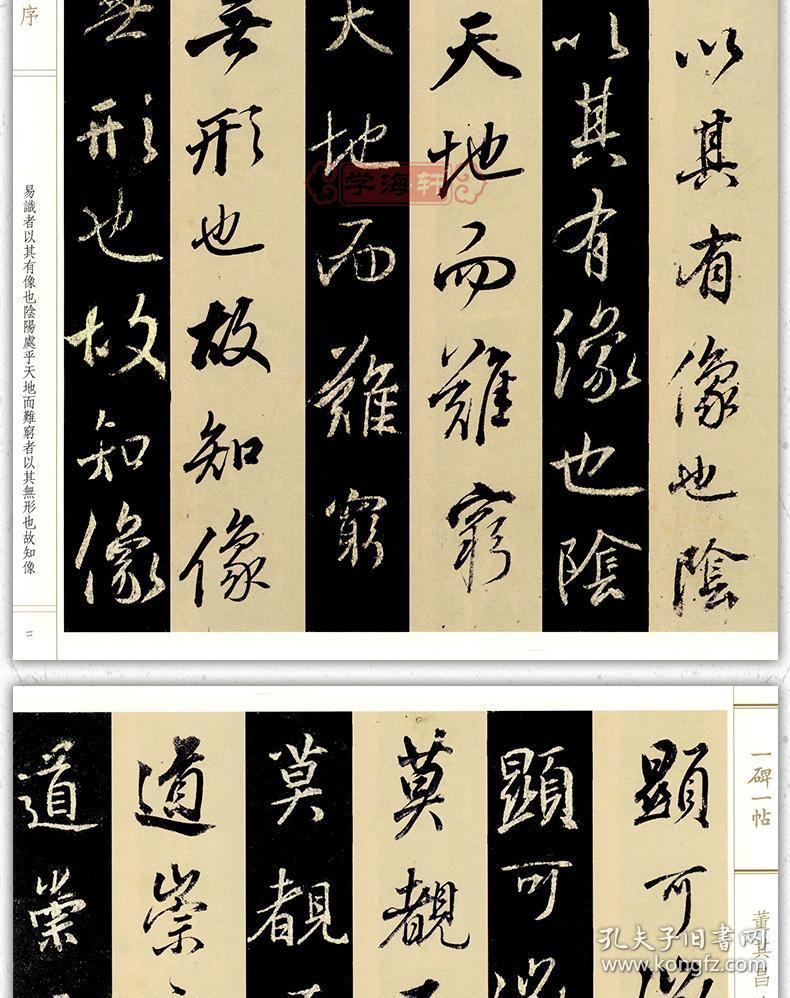 以其有像也陰
以其有像也陰
天地而難窮
天地而難窮
無形也故知像
無形也故知像
序
易識者以其有像也陰陽處乎天地而難窮者以其無形也故知像
二
学海轩
一碑一帖
董其昌
顯可
顯可
莫覩
莫覩
道崇
道崇
孔夫子旧书网
www.kongfz.com